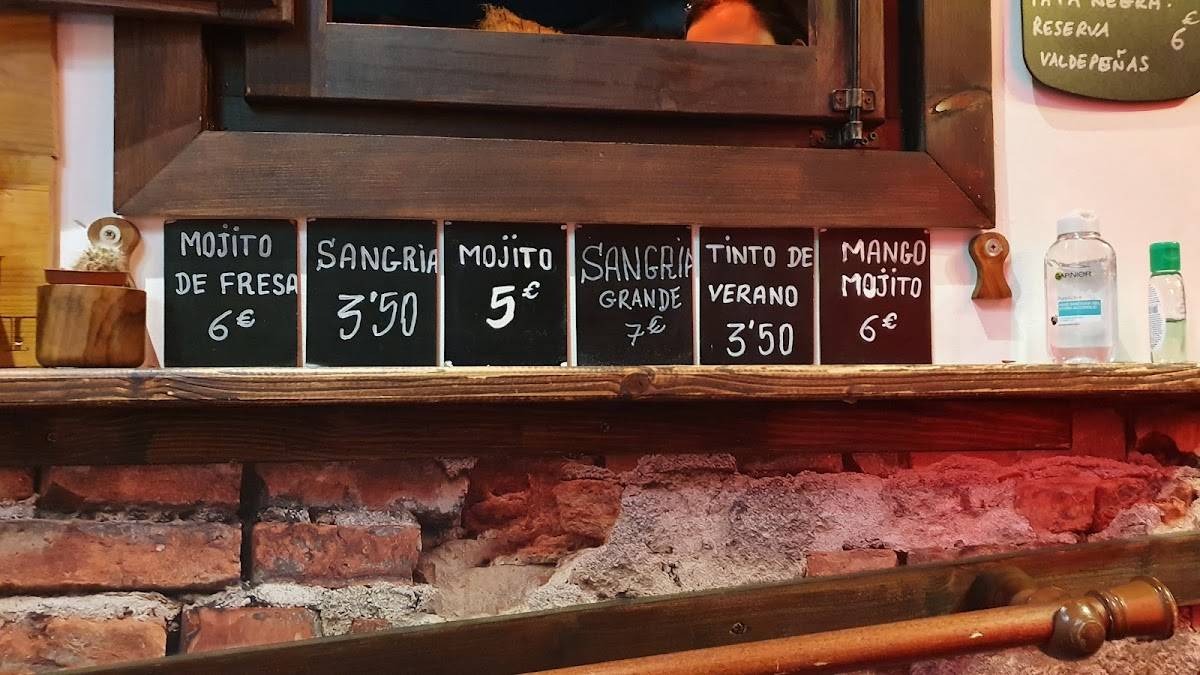 PATA NEGRA.
RESERVA €
VALDEPEÑAS 6
MOJITO
DE FRESA
6€
SANGRÌA
3'50
MOJITO
5€
SANGRÌA
GRANDE
7€
TINTO DE
VERANO
3'50
MANGO
MOJITO
6€
GARNIER